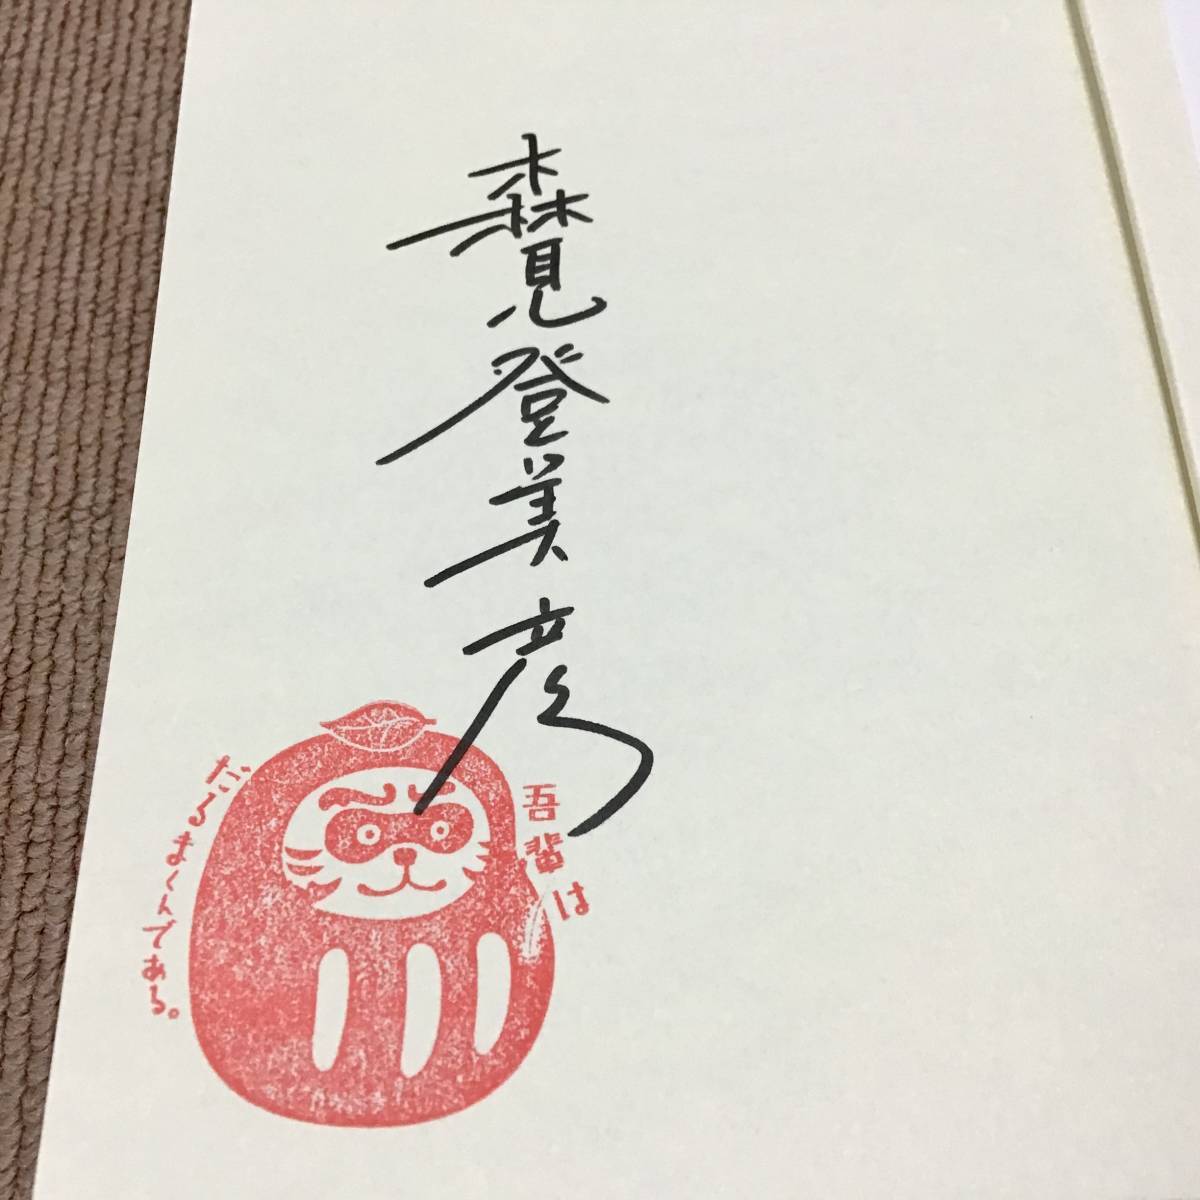 森見登美彦
吾輩は
だるまくんである。